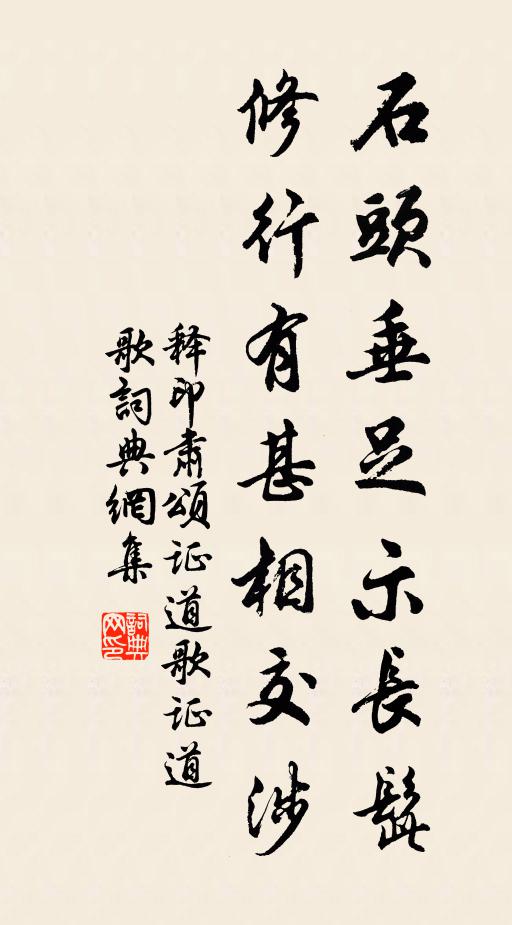 石頭垂足示長髭
修行有甚相交涉
释印肅頌证道歌证道
歌詞典網集
詞典
网印